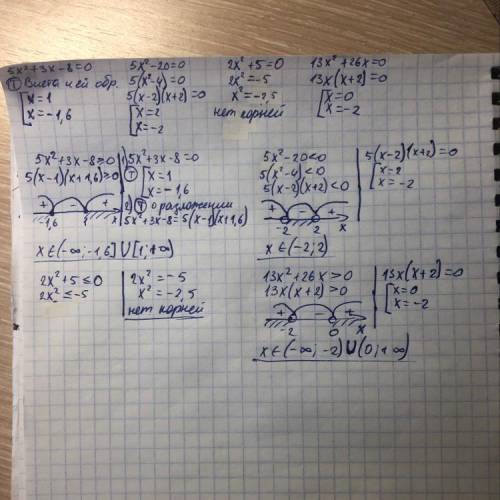 5x²+3x-8=0
Ⓣ Виета и ей обр.
[x=1
x=-1,6
5x²-20=0
5(x²-4)=0
5(x-2)(x+2)=0
[x=2
x=-2
2x²+5=0
2x²=-5
x²=-2,5
нет корней
13x²+26x=0
13x(x+2)=0
[x=0
x=-2
5x²+3x-8≥0
5(x-1)(x+1,6)≥0
+ - +
-1,6 1 x
1) 5x²+3x-8=0
Ⓣ [x=1
x=-1,6
2) Ⓣ о разложении
5x²+3x-8=5(x-1)(x+1,6)
x∈(-∞;-1,6]∪[1;+∞)
5x²-20<0
5(x²-4)<0
5(x-2)(x+2)<0
+ - +
-2 2 x
5(x-2)(x+2)=0
[x=2
x=-2
x∈(-2;2)
2x²+5≤0
2x²≤-5
2x²=-5
x²=-2,5
нет корней
13x²+26x>0
13x(x+2)>0
+ - +
-2 0 x
13x(x+2)=0
[x=0
x=-2
x∈(-∞;-2)∪(0;+∞)